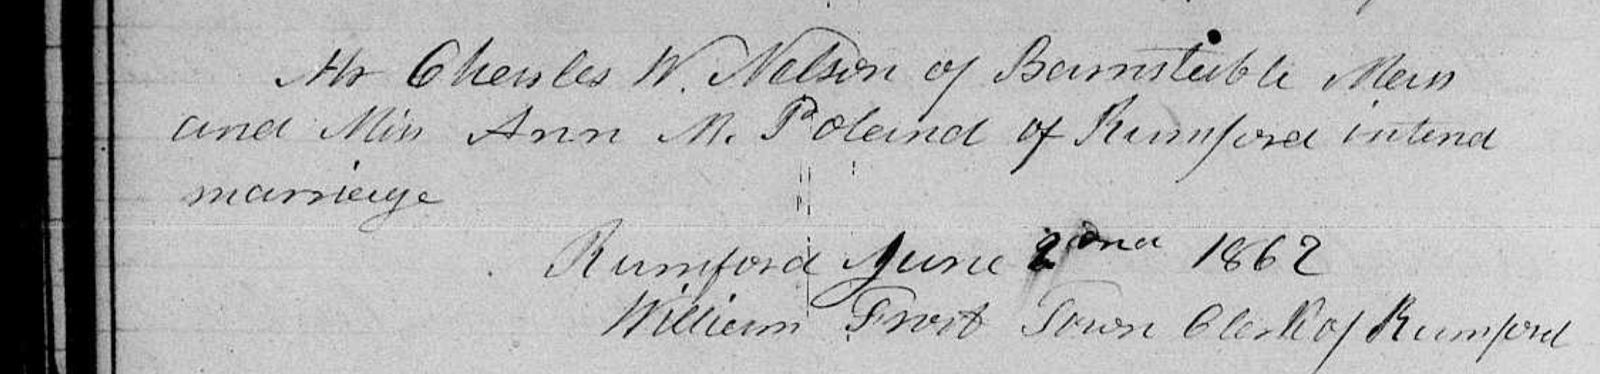 Mr Charles W. Nelson of Barnstable Mass
and Miss Ann M. Poland of Rumford intend
marriage
Rumford June 2ond 1862
William Frost Town Clerk of Rumford